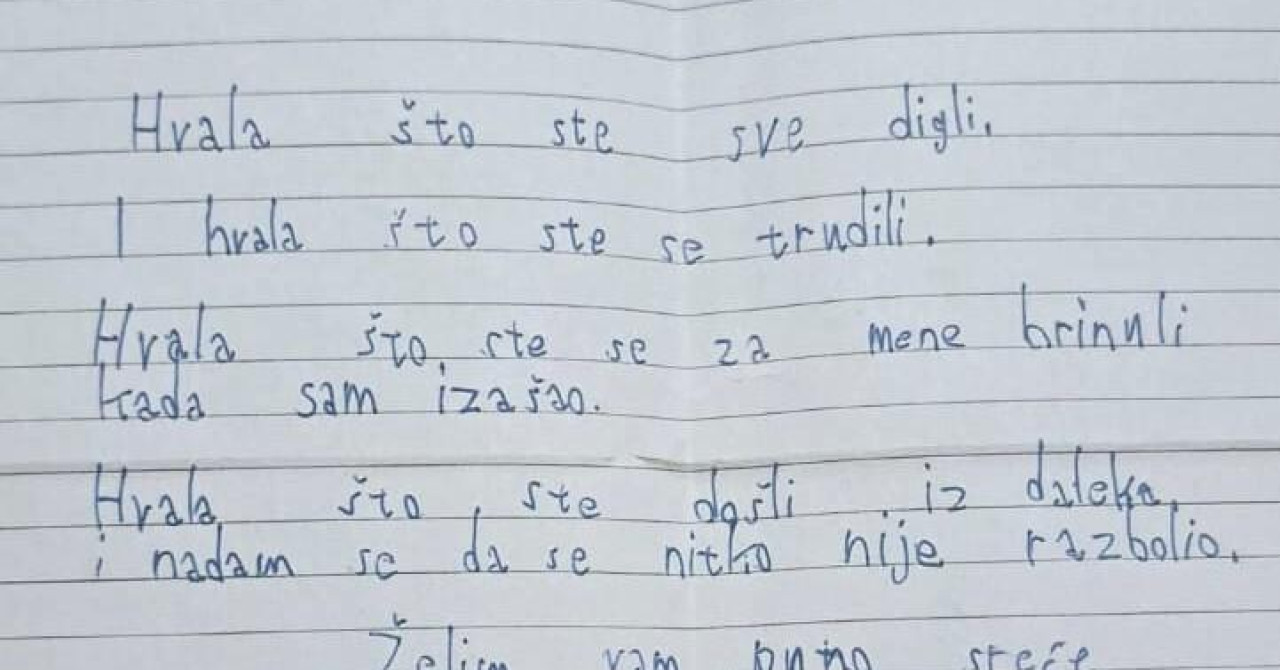 Hvala što ste sve digli.
I hvala što ste se trudili.
Hvala što ste se za mene brinuli
kada sam izašao.
Hvala što ste došli iz daleka,
i nadam se da se nitko nije razbolio.
Želim vam puno sreće